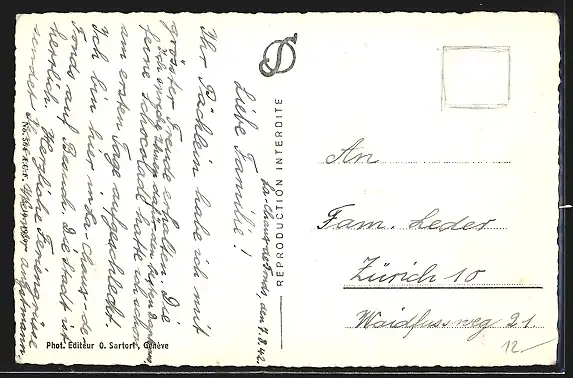 La Chaux-de-Fonds, den 7.8.42.
Liebe Familie!
Ihr Päcklein habe ich mit
grösster Freude erhalten. Die
feine Schocolad hatte ich schon
am ersten Tage aufgeschleckt.
Ich bin hier in La Chaux-de
Fonds auf Besuch. Die Stadt ist
herrlich! Herzliche Feriengrüsse
sendet Ihnen
REPRODUCTION INTERDITE
An
Fam. Leder
Zürich 10
Waidfussweg 21
12.-
Phot. Editeur O. Sartori, Genève